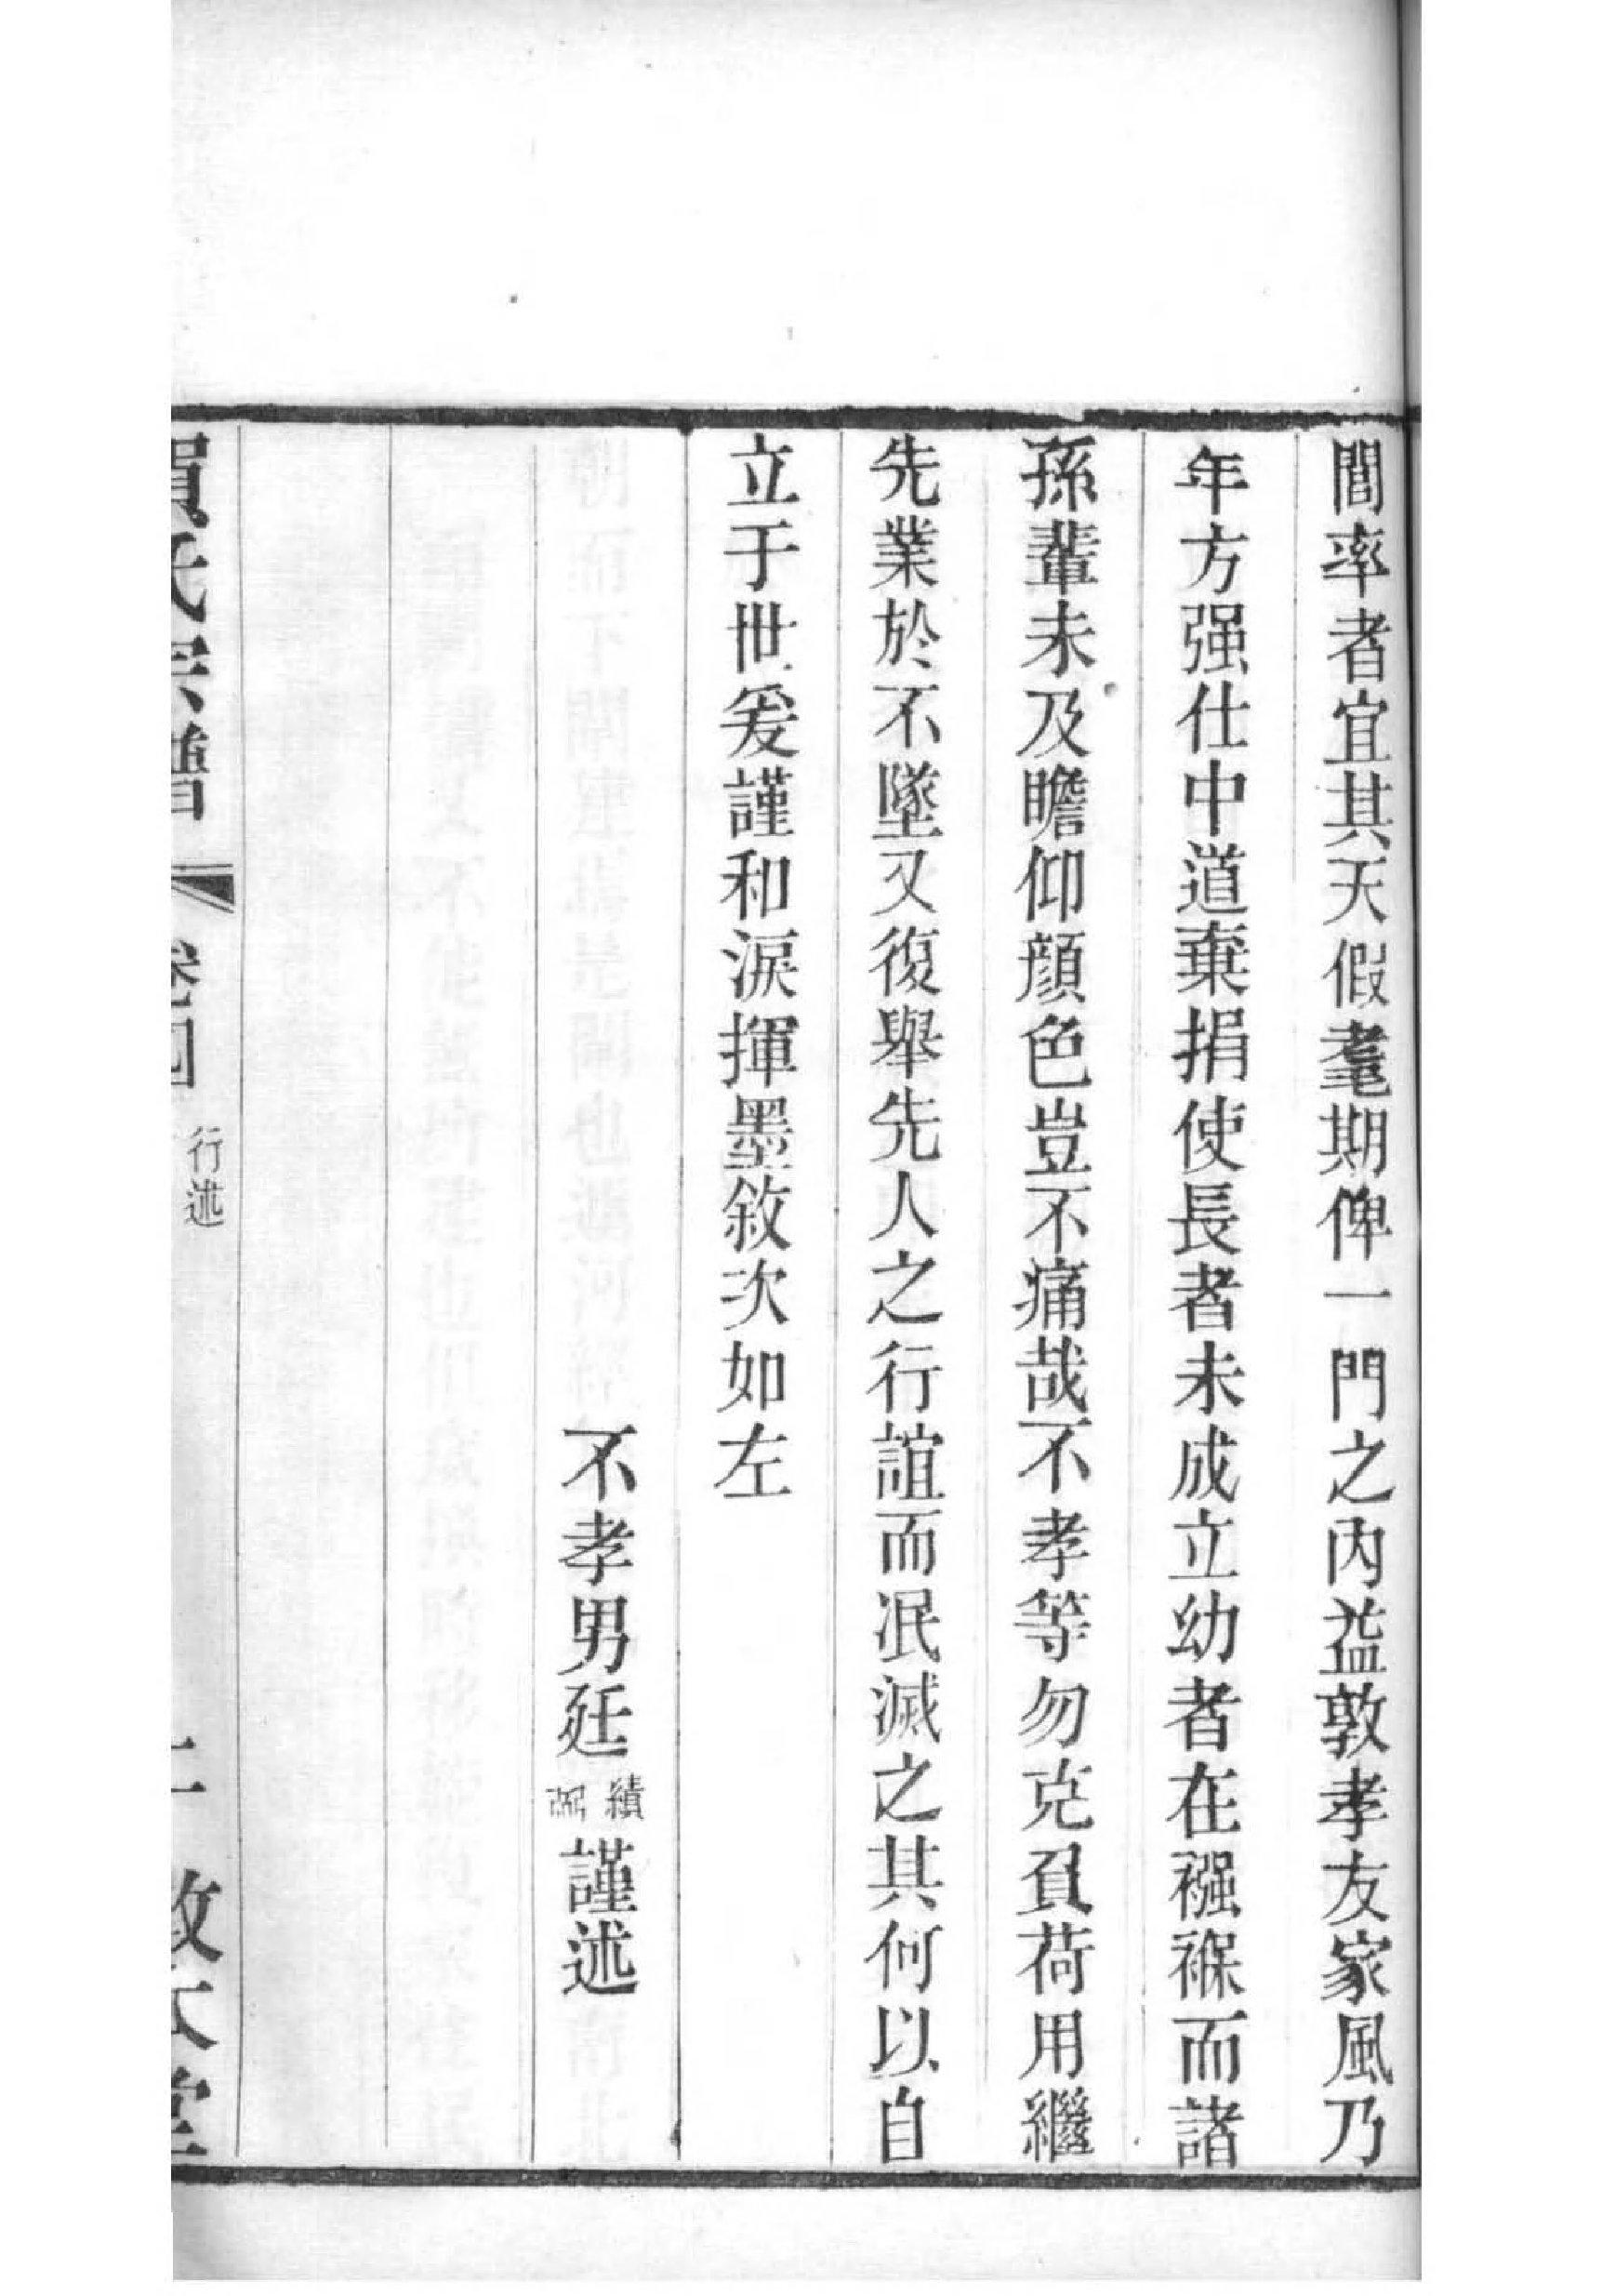 間率者宜其天假耄期俾一門之內益敦孝友家風乃
年方强仕中道棄捐使長者未成立幼者在襁褓而諸
孫輩未及瞻仰顔色豈不痛哉不孝等勿克負荷用繼
先業於不墜又復舉先人之行誼而泯滅之其何以自
立于世爰謹和淚揮墨敘次如左
不孝男廷績謹述
氏宗譜 卷四 行述